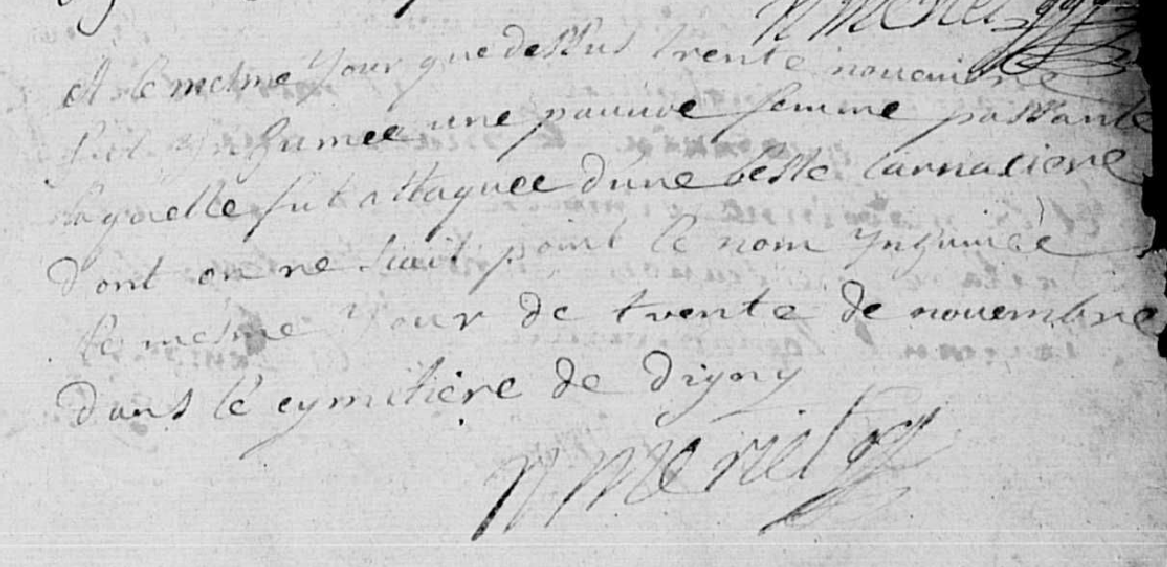 N Meriet
Et le mesme Jour que dessus trente nouembre
fut Inhumee une pauure femme passante
laquelle fut attaquee d'une beste carnasiere
dont on ne scait point le nom Inhumée
le mesme Jour de trente de nouembre
dans le cymitiere de Digny
N Meriet